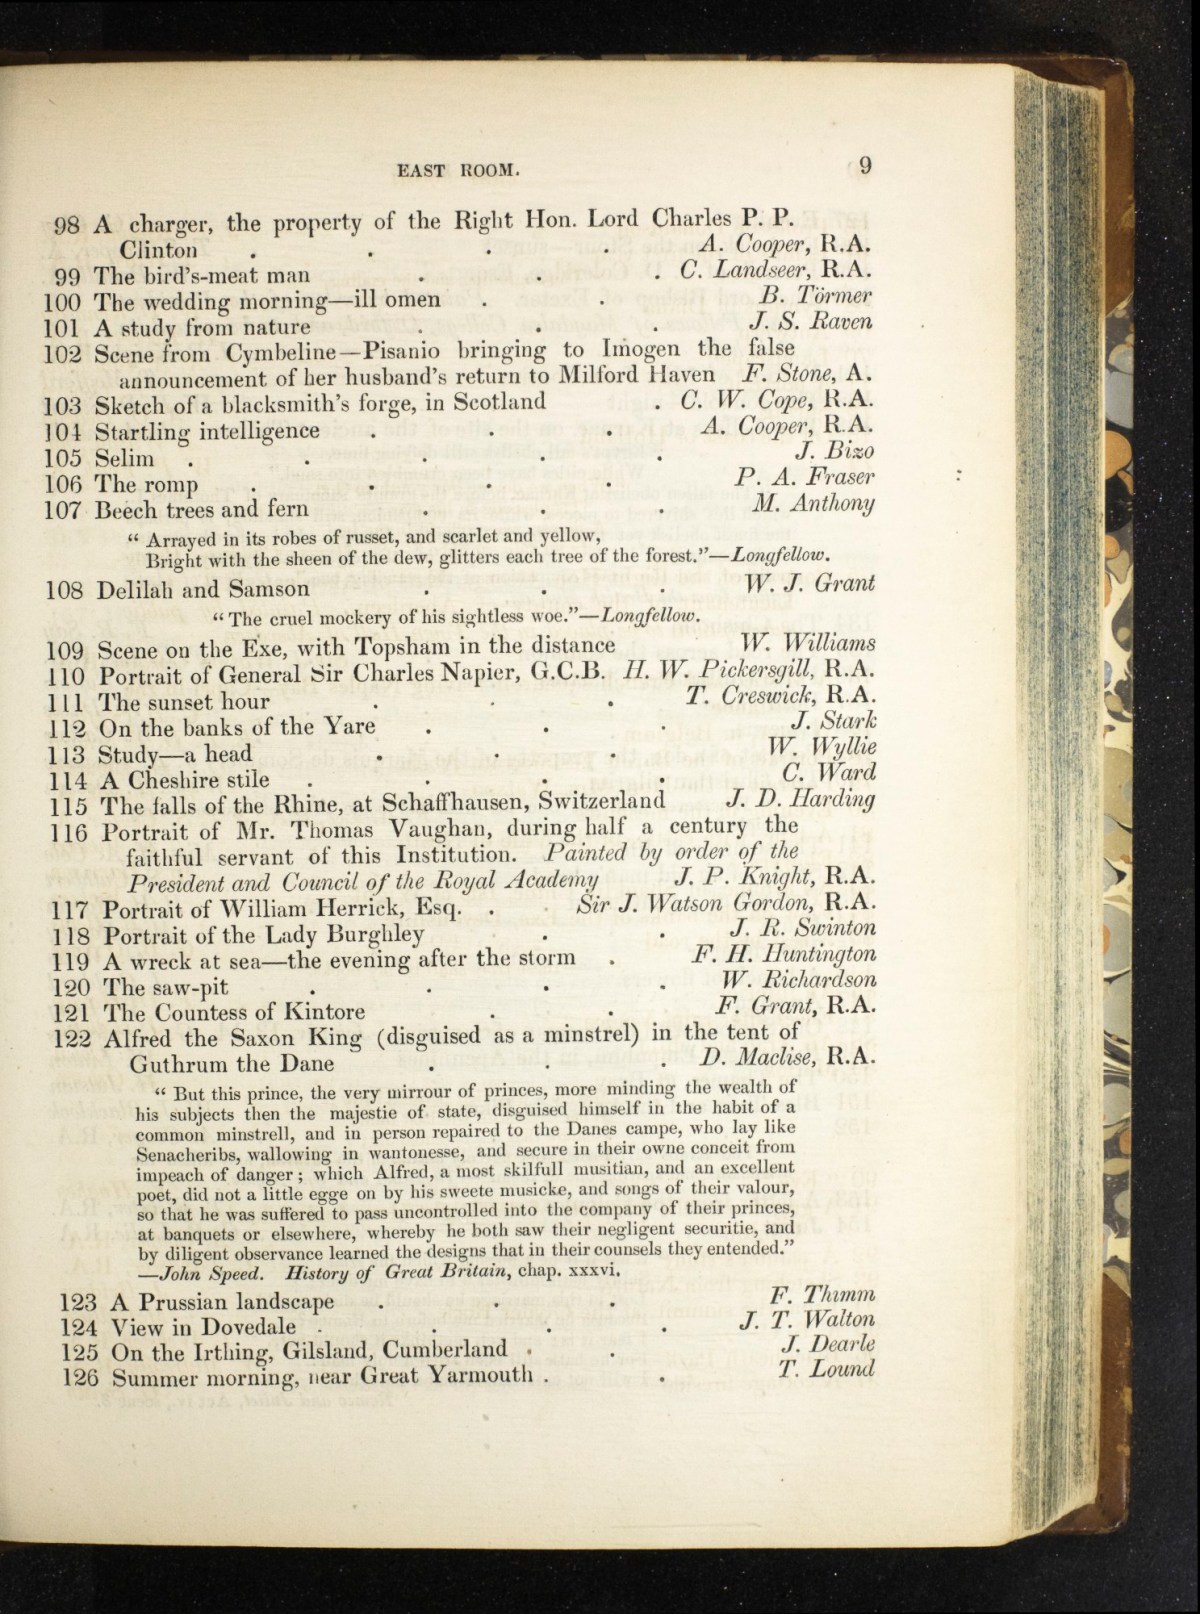 EAST ROOM. 9
98 A charger, the property of the Right Hon. Lord Charles P. P.
Clinton . . . . A. Cooper, R.A.
99 The bird's-meat man . . . C. Landseer, R.A.
100 The wedding morning—ill omen . . B. Törmer
101 A study from nature . . . J. S. Raven
102 Scene from Cymbeline—Pisanio bringing to Imogen the false
announcement of her husband's return to Milford Haven F. Stone, A.
103 Sketch of a blacksmith's forge, in Scotland . C. W. Cope, R.A.
104 Startling intelligence . . . A. Cooper, R.A.
105 Selim . . . . . J. Bizo
106 The romp . . . . P. A. Fraser
107 Beech trees and fern . . . M. Anthony
“ Arrayed in its robes of russet, and scarlet and yellow,
Bright with the sheen of the dew, glitters each tree of the forest.”—Longfellow.
108 Delilah and Samson . . . W. J. Grant
“ The cruel mockery of his sightless woe.”—Longfellow.
109 Scene on the Exe, with Topsham in the distance W. Williams
110 Portrait of General Sir Charles Napier, G.C.B. H. W. Pickersgill, R.A.
111 The sunset hour . . . T. Creswick, R.A.
112 On the banks of the Yare . . . J. Stark
113 Study—a head . . . W. Wyllie
114 A Cheshire stile . . . . C. Ward
115 The falls of the Rhine, at Schaffhausen, Switzerland J. D. Harding
116 Portrait of Mr. Thomas Vaughan, during half a century the
faithful servant of this Institution. Painted by order of the
President and Council of the Royal Academy J. P. Knight, R.A.
117 Portrait of William Herrick, Esq. . Sir J. Watson Gordon, R.A.
118 Portrait of the Lady Burghley . . J. R. Swinton
119 A wreck at sea—the evening after the storm . F. H. Huntington
120 The saw-pit . . . . W. Richardson
121 The Countess of Kintore . . F. Grant, R.A.
122 Alfred the Saxon King (disguised as a minstrel) in the tent of
Guthrum the Dane . . . D. Maclise, R.A.
“ But this prince, the very mirrour of princes, more minding the wealth of
his subjects then the majestie of state, disguised himself in the habit of a
common minstrell, and in person repaired to the Danes campe, who lay like
Senacheribs, wallowing in wantonesse, and secure in their owne conceit from
impeach of danger ; which Alfred, a most skilfull musitian, and an excellent
poet, did not a little egge on by his sweete musicke, and songs of their valour,
so that he was suffered to pass uncontrolled into the company of their princes,
at banquets or elsewhere, whereby he both saw their negligent securitie, and
by diligent observance learned the designs that in their counsels they entended.”
—John Speed. History of Great Britain, chap. xxxvi.
123 A Prussian landscape . . . F. Thimm
124 View in Dovedale . . . . J. T. Walton
125 On the Irthing, Gilsland, Cumberland . . J. Dearle
126 Summer morning, near Great Yarmouth . . T. Lound